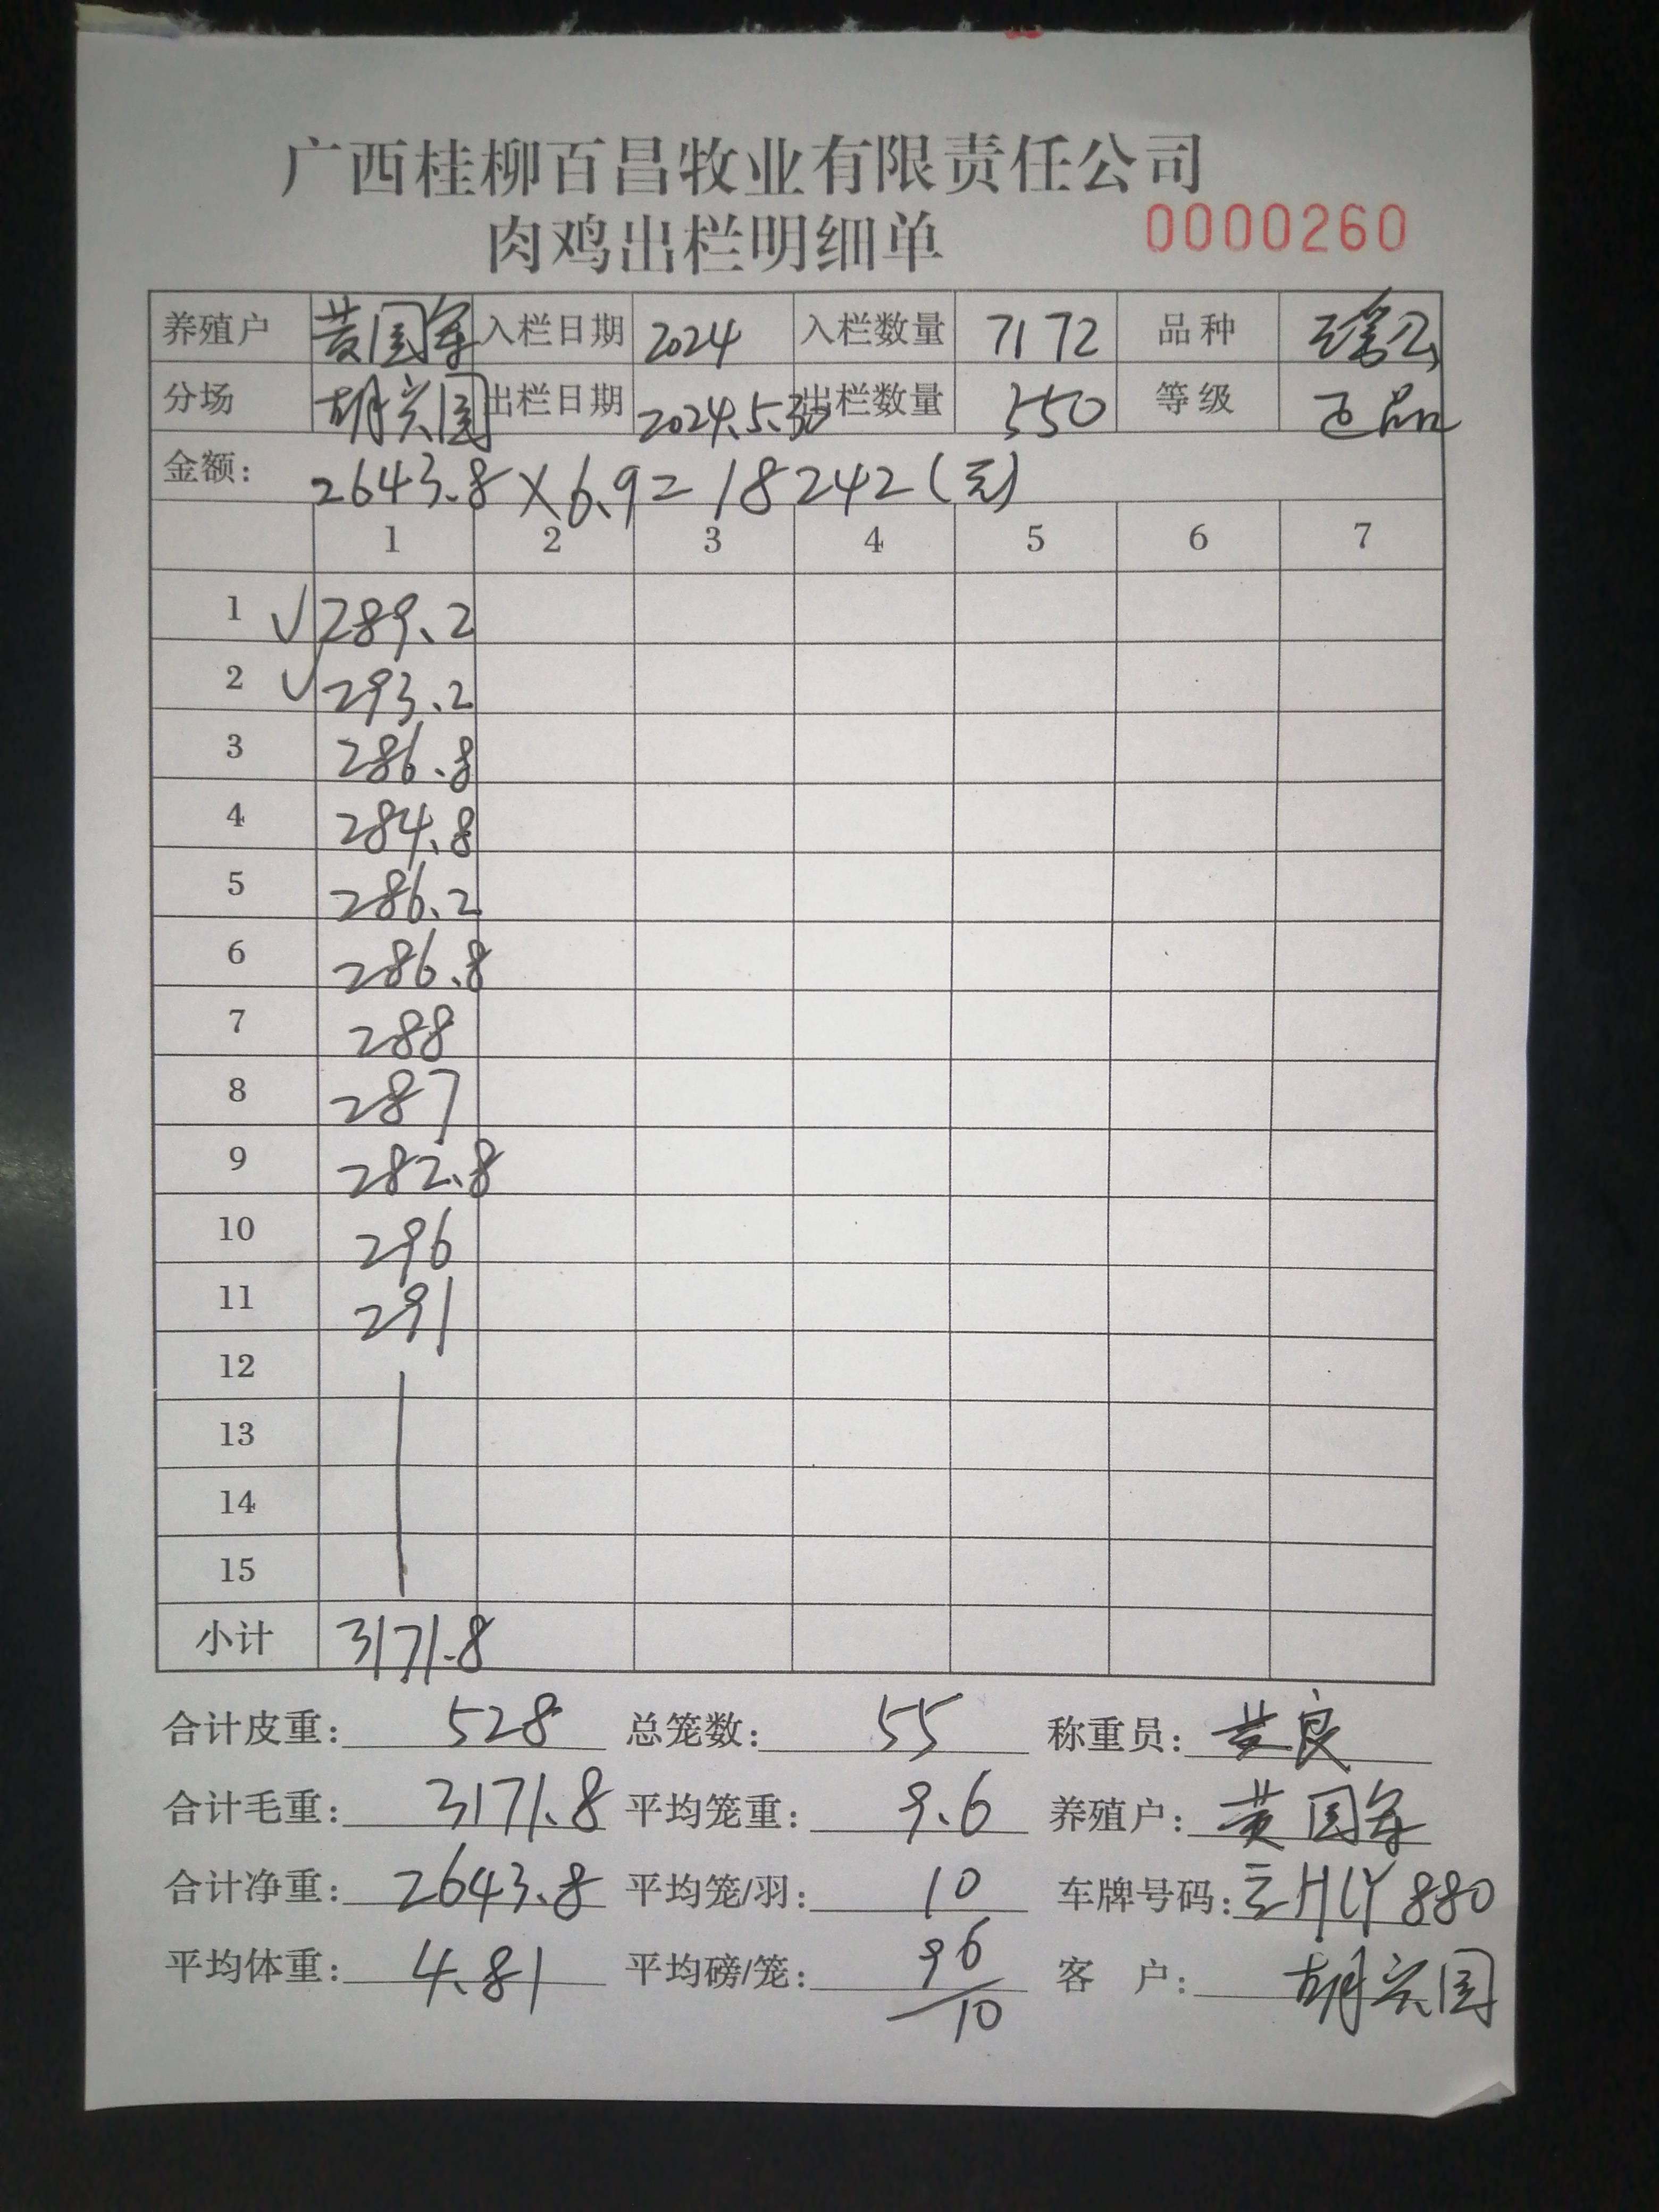 广西桂柳百昌牧业有限责任公司
肉鸡出栏明细单 0000260
养殖户 黄国军 入栏日期 2024 入栏数量 7172 品种 瑶公
分场 胡兴国 出栏日期 2024.5.30 出栏数量 550 等级 正品
金额: 2643.8×6.9=18242(元)
1 2 3 4 5 6 7
1 √ 289.2
2 √ 293.2
3 286.8
4 284.8
5 286.2
6 286.8
7 288
8 287
9 282.8
10 296
11 291
12
13
14
15
小计 3171.8
合计皮重: 528 总笼数: 55 称重员: 黄良
合计毛重: 3171.8 平均笼重: 9.6 养殖户: 黄国军
合计净重: 2643.8 平均笼/羽: 10 车牌号码: 云HLY880
平均体重: 4.81 平均磅/笼: 96/10 客 户: 胡兴国